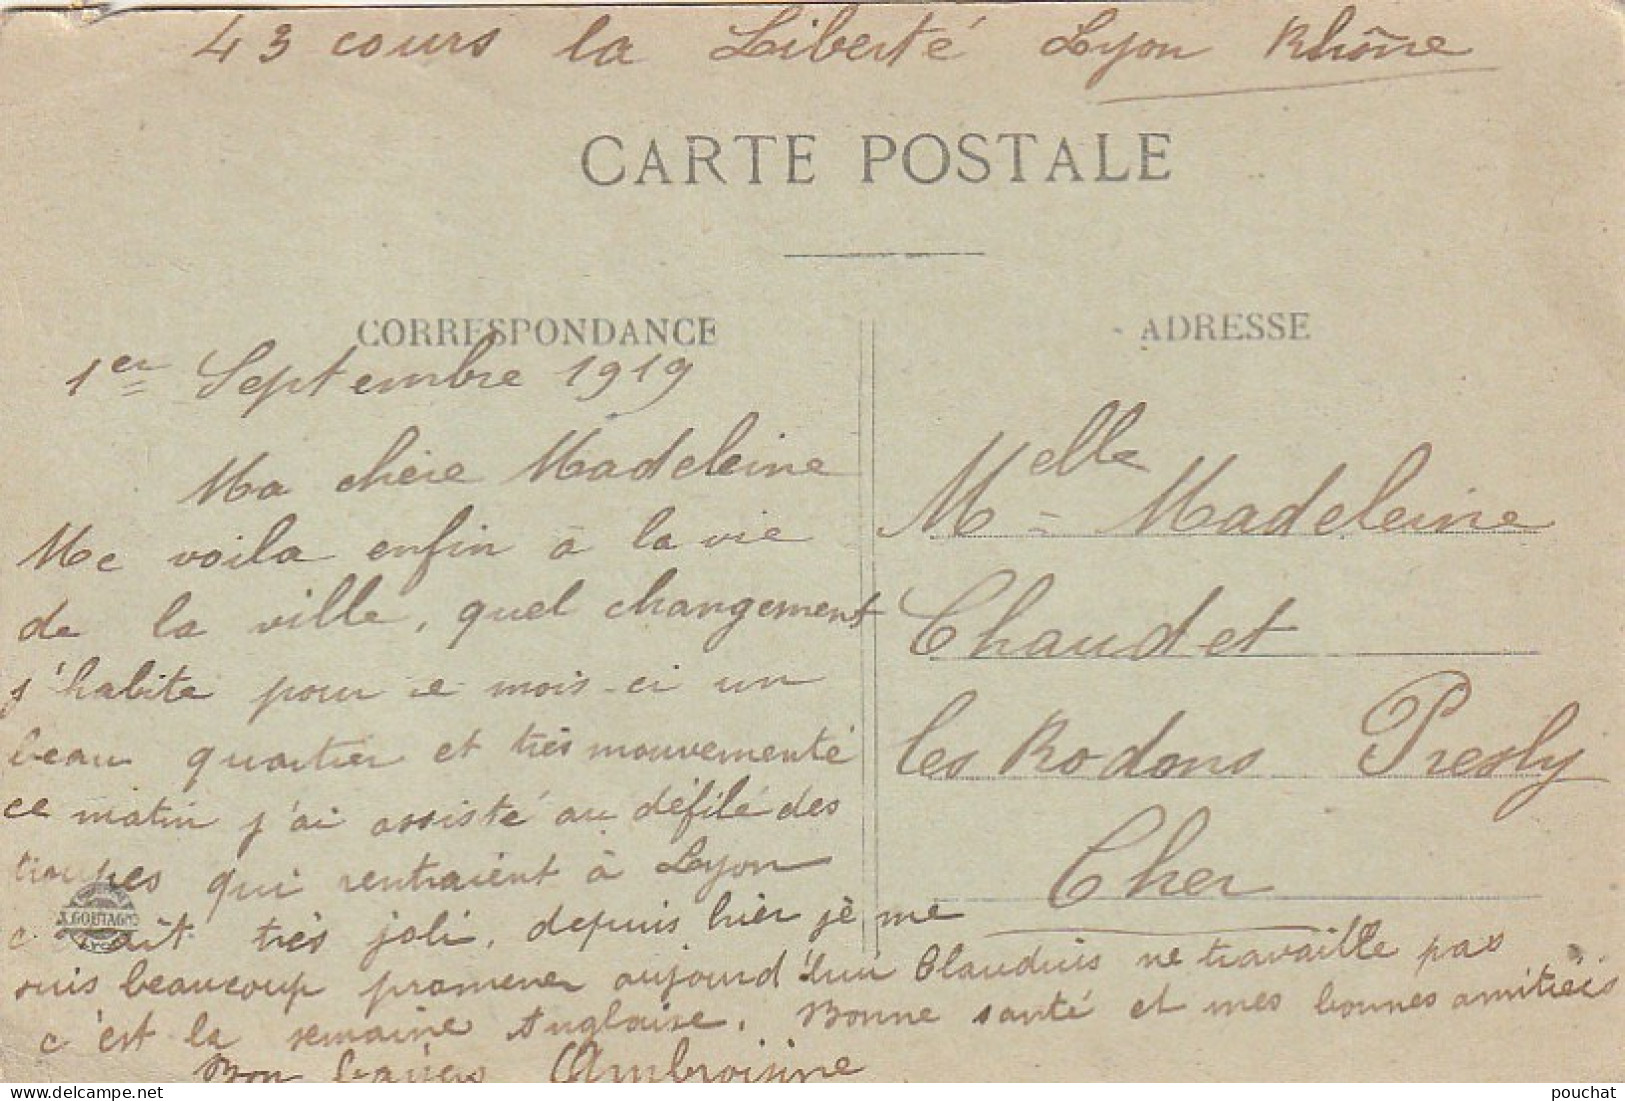 43 cours la Liberté Lyon Rhône
CARTE POSTALE
CORRESPONDANCE
1er Septembre 1919
Ma chère Madeleine
Me voila enfin à la vie
de la ville, quel changement
j'habite pour ce mois-ci un
beau quartier et très mouvementé
ce matin j'ai assisté au défilé des
troupes qui rentraient à Lyon
c'était très joli, depuis hier je me
suis beaucoup promener aujourd'hui Claudius ne travaille pas
c'est la semaine Anglaise. Bonne santé et mes bonnes amitiés
Bon baisers Ambroisine
ADRESSE
Melle Madeleine
Chaudet
les Rodons Presly
Cher
X. GOUTAGNY
LYON
pouchat